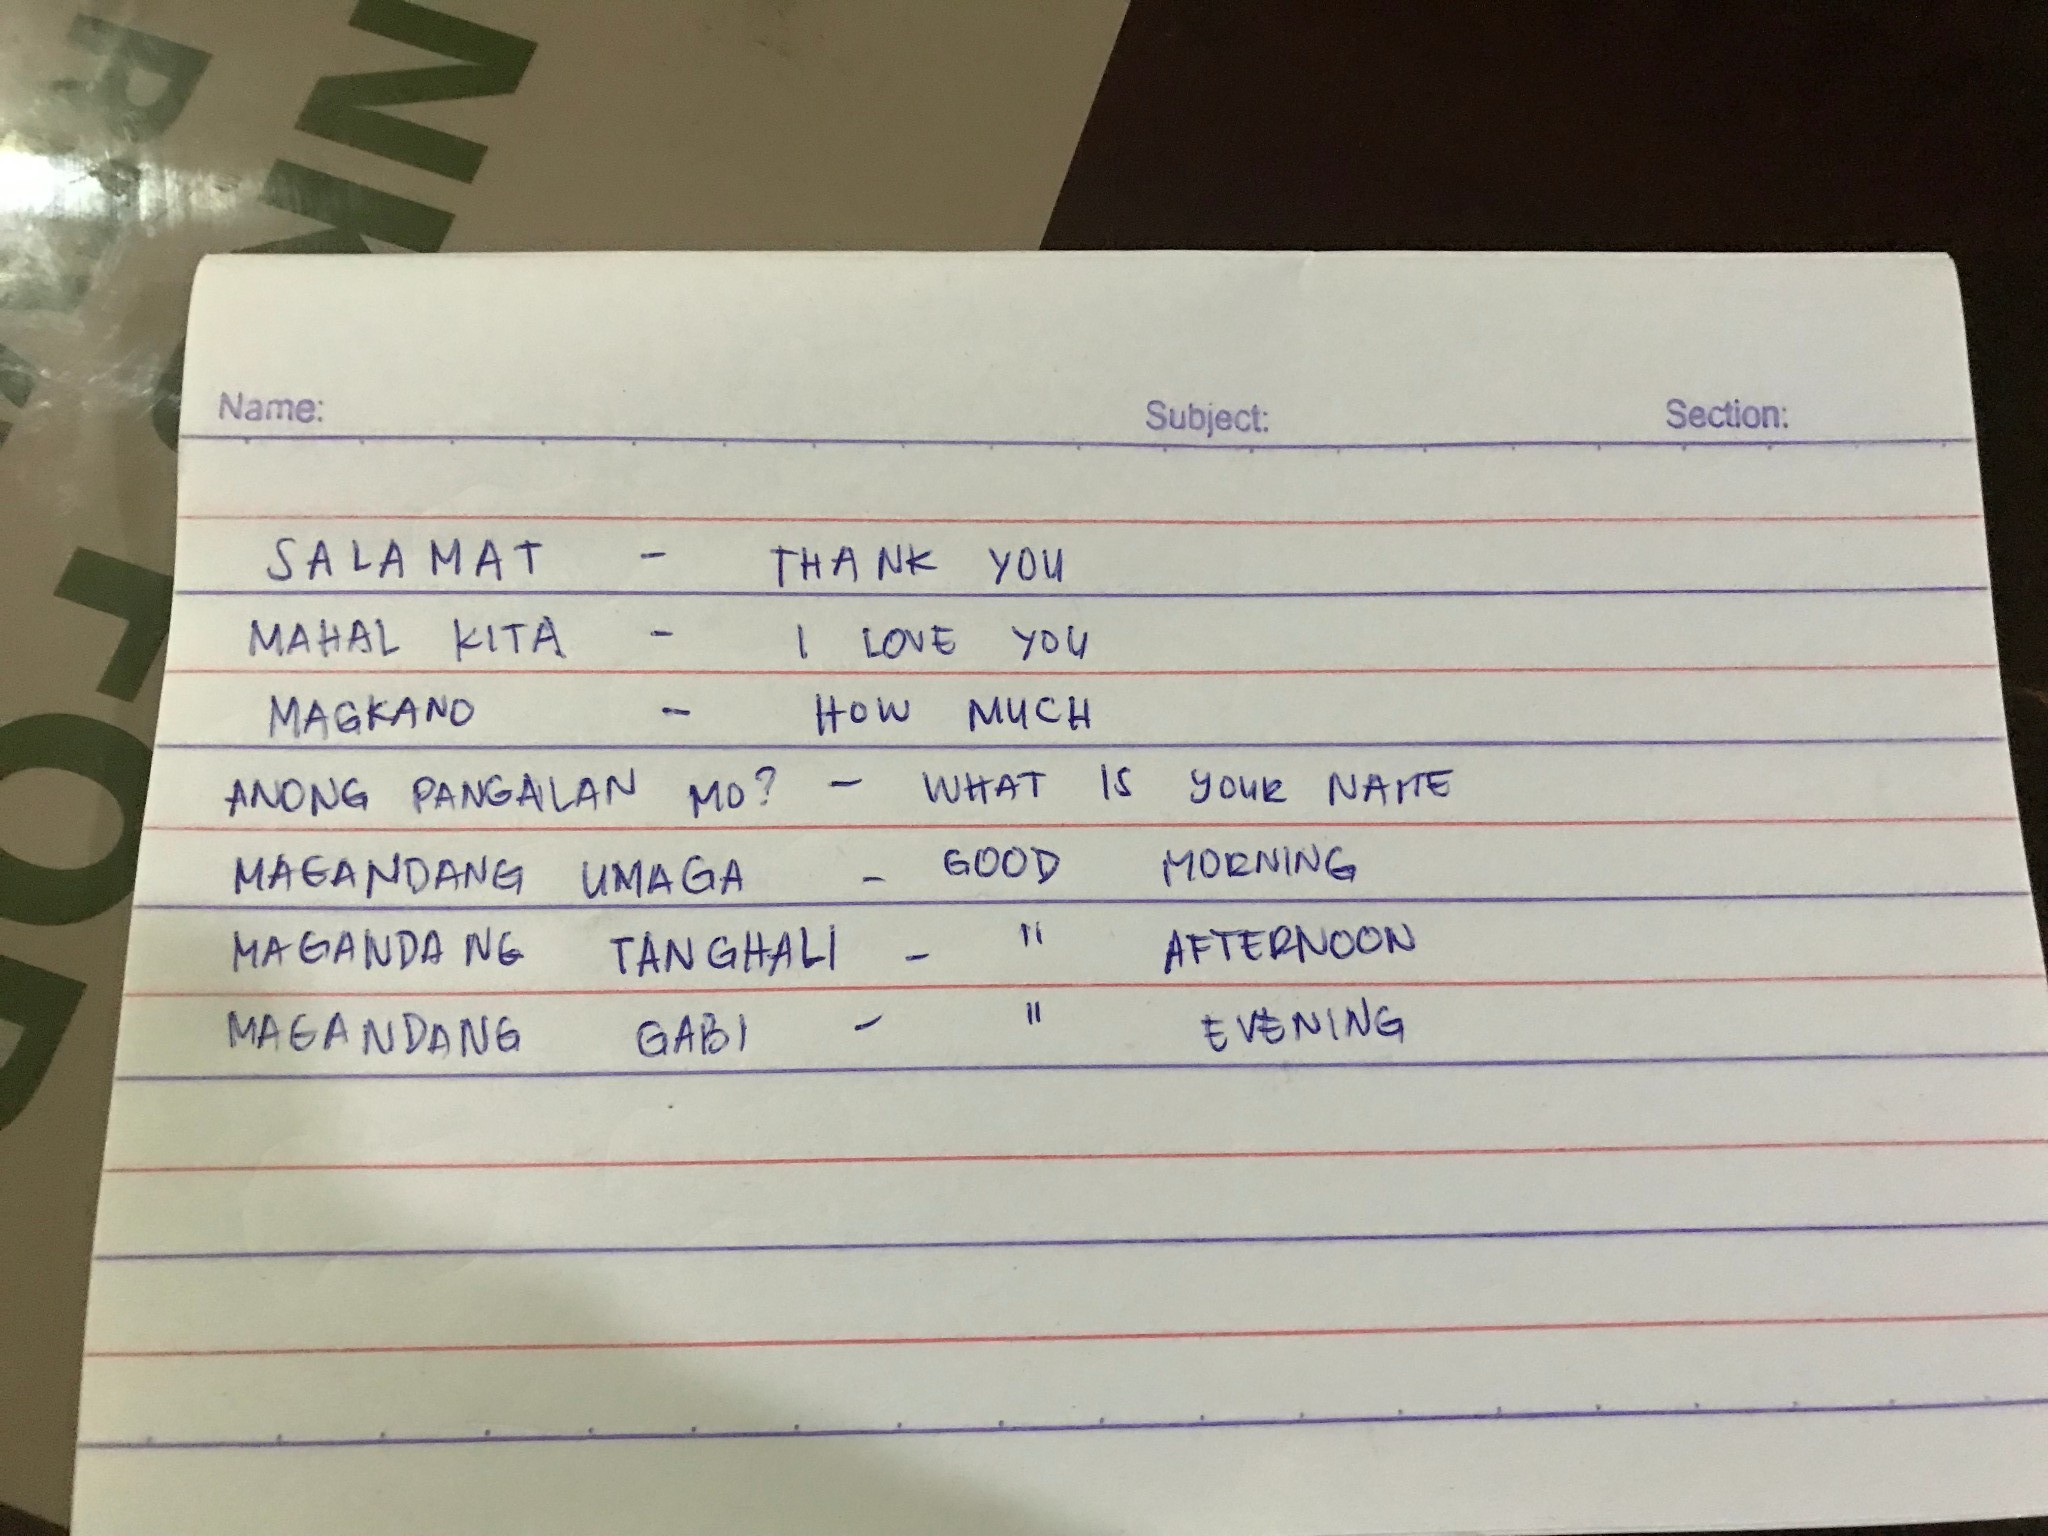 Name: Subject: Section:
SALAMAT - THANK YOU
MAHAL KITA - I LOVE YOU
MAGKANO - HOW MUCH
ANONG PANGALAN MO? - WHAT IS YOUR NAME
MAGANDANG UMAGA - GOOD MORNING
MAGANDANG TANGHALI - " AFTERNOON
MAGANDANG GABI - " EVENING